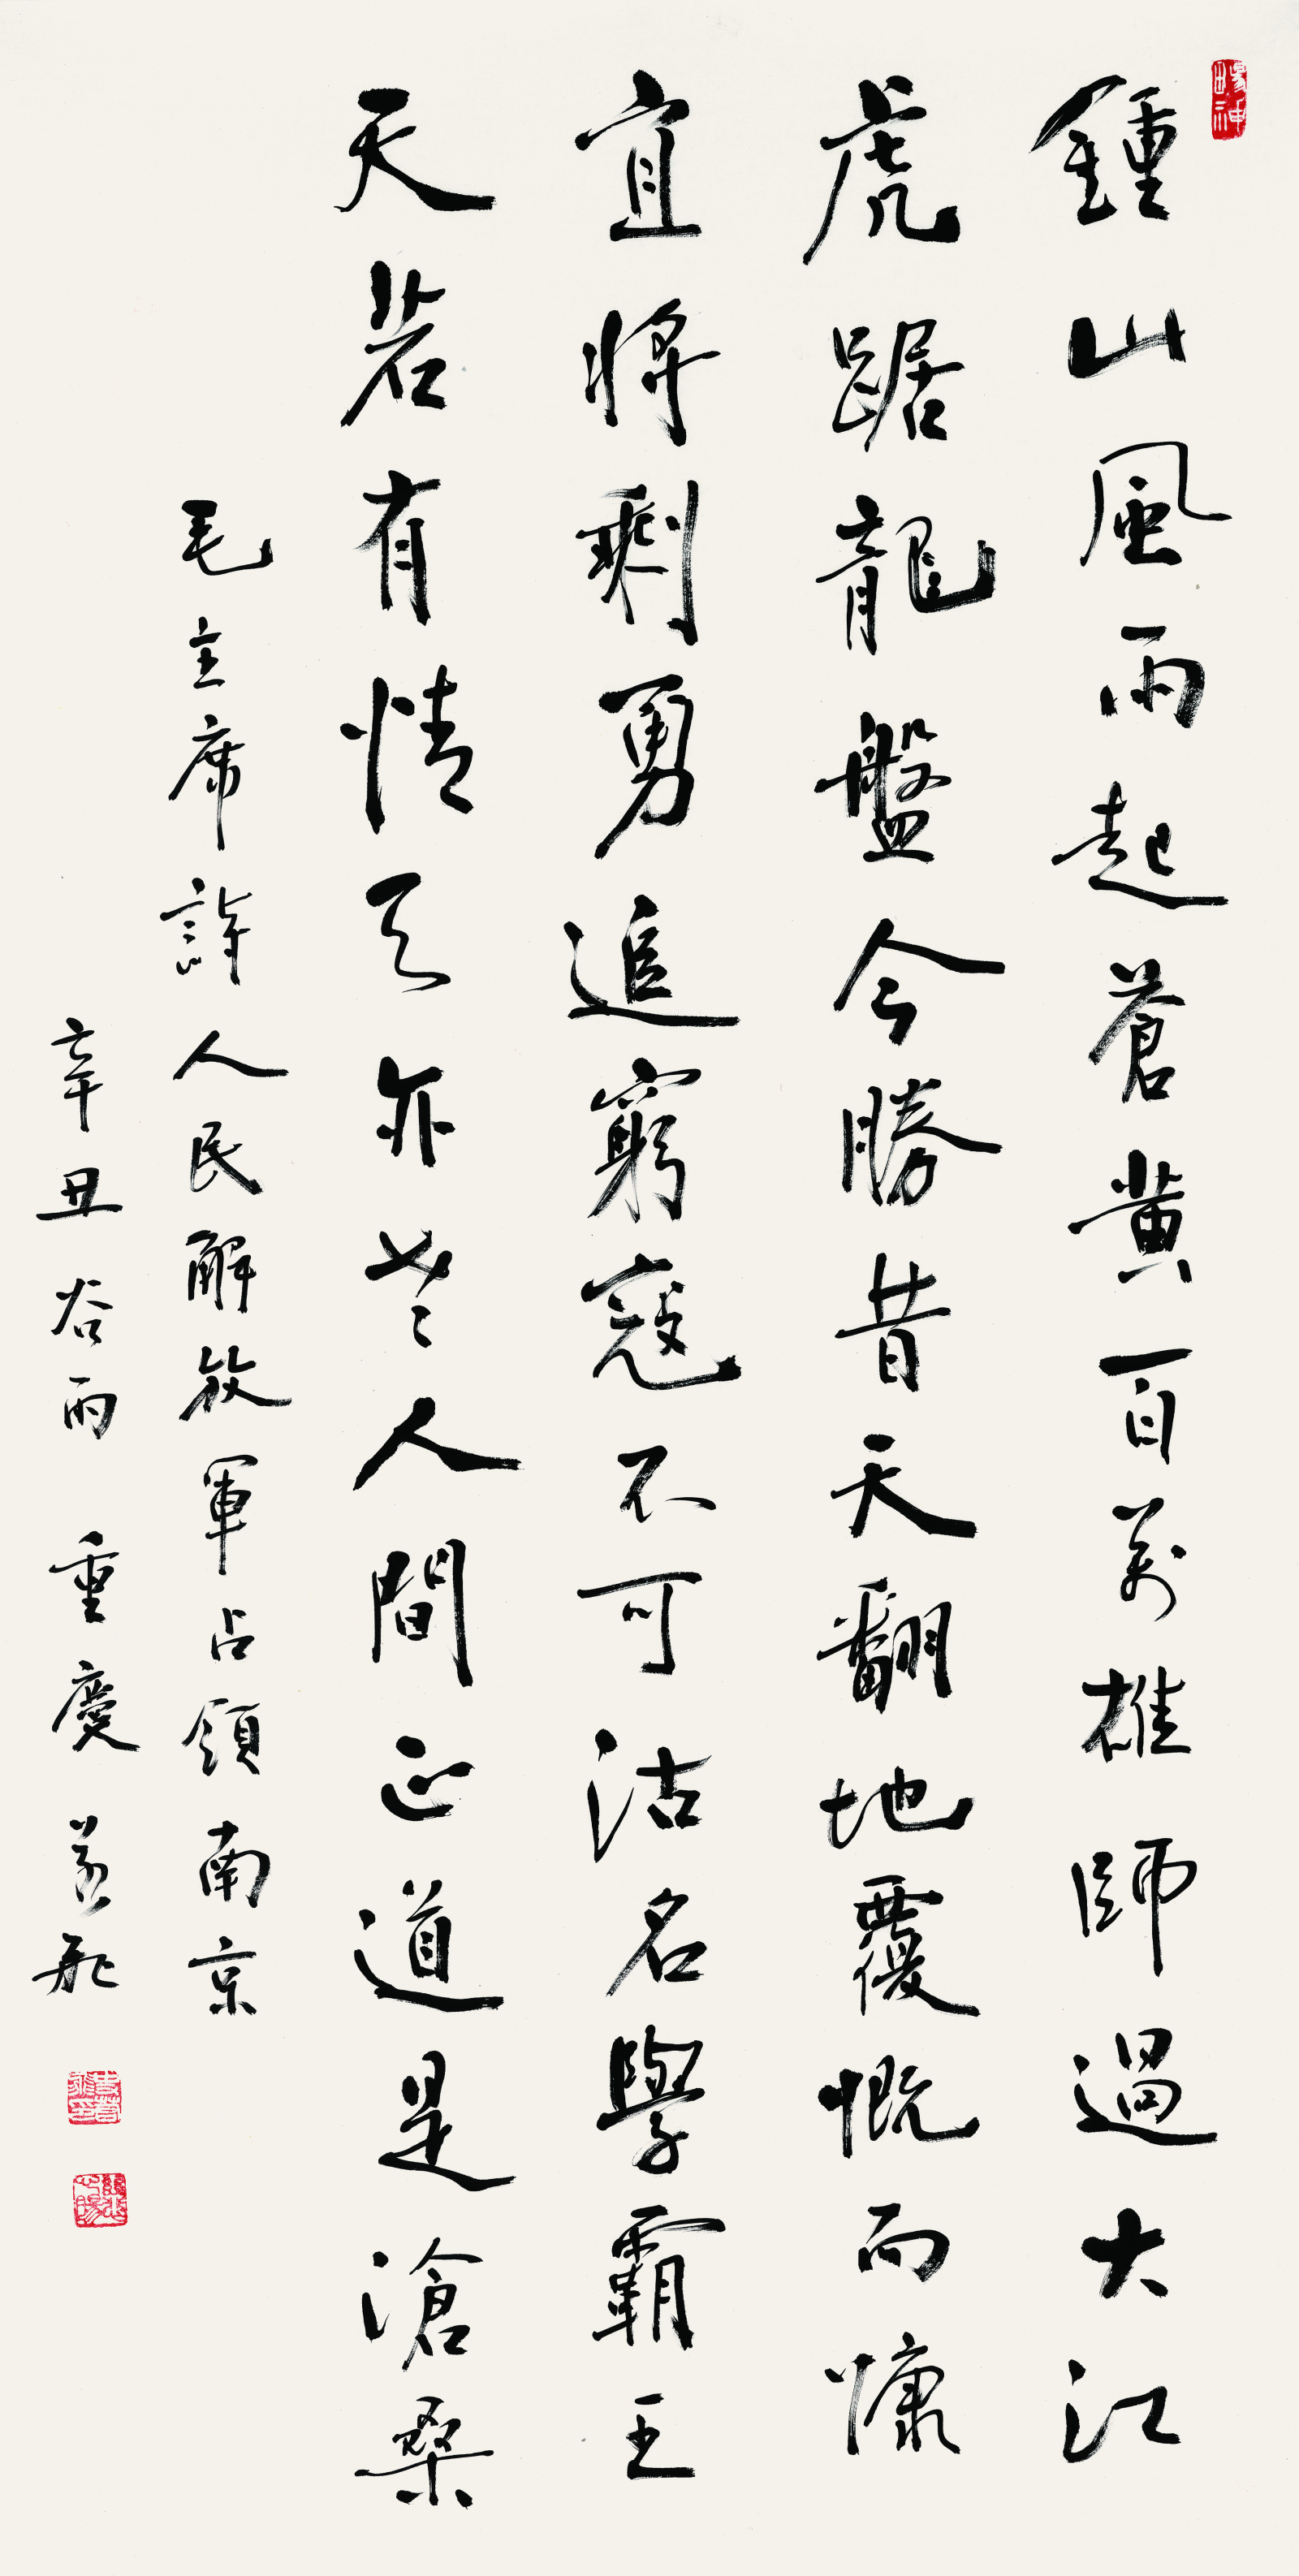 鍾山風雨起蒼黄百萬雄師過大江
虎踞龍盤今勝昔天翻地覆慨而慷
宜將剩勇追窮寇不可沽名學霸王
天若有情天亦老人間正道是滄桑
毛主席詩人民解放軍占領南京
辛丑谷雨重慶